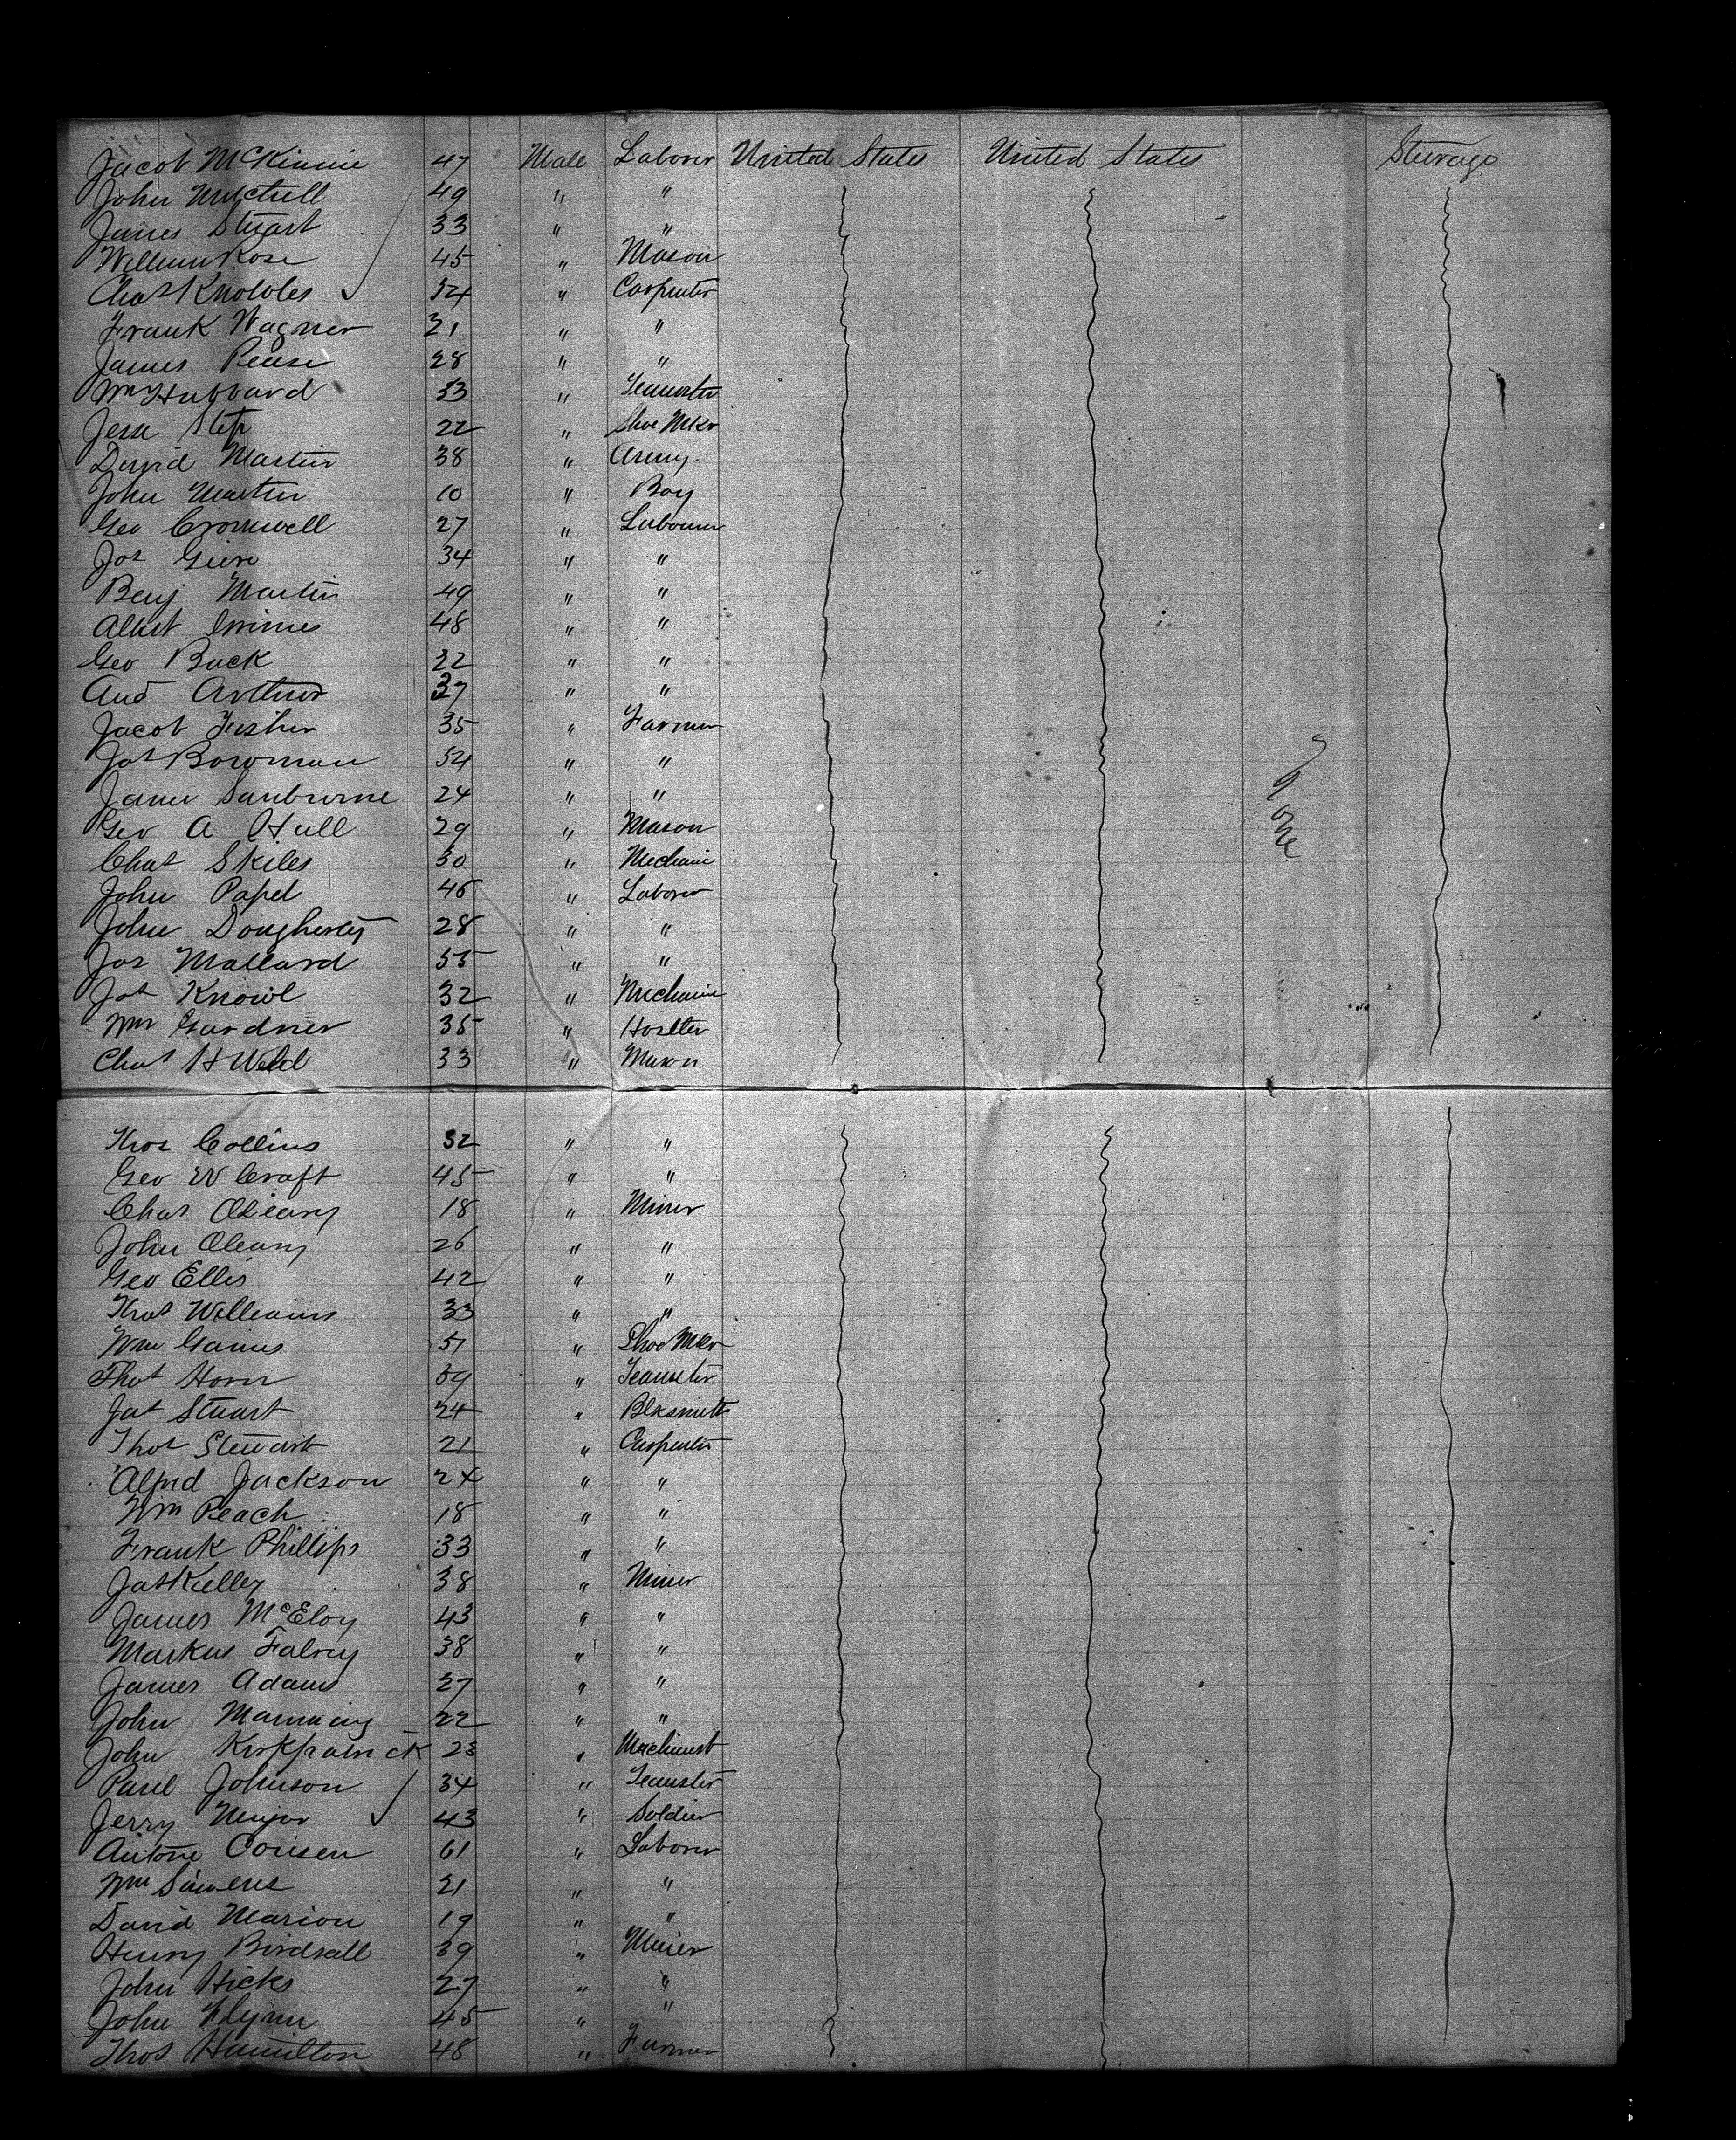 Jacob McKinnie 47 Male Laborer United States United States Steerage
John Mitchell 49 " "
James Stuart 33 " "
William Rose 45 " Mason
Chas Knowles 34 " Carpenter
Frank Wagner 31 " "
James Pease 28 " "
Wm Hubbard 33 " Teamster
Jesse Step 22 " Shoe Mkr
David Martin 38 " Army.
John Martin 10 " Boy
Geo Cromwell 27 " Labourer
Jos 34 " "
Benj Martin 49 " "
Albert Grimes 48 " "
Geo Buck 32 " "
And Arthur 37 " "
Jacob Fisher 35 " Farmer
Jos Bowman 34 " "
James Sanburne 24 " "
Geo A Hull 29 " Mason
Chas Skiles 30 " Mechanic
John Papel 46 " Laborer
John Dougherty 28 " "
Jos Mallard 55 " "
Jos Knowl 32 " Mechanic
Wm Gardner 35 " Hostler
Chas H Weld 33 " Mason
None
Thos Collins 32 " "
Geo W Craft 45 " "
Chas OLeary 18 " Miner
John Oleary 26 " "
Geo Ellis 42 " "
Thos Williams 33 " "
Wm Gaines 51 " Shoe Mkr
Thos Horn 39 " Teamster
Jas Stuart 24 " Blksmith
Thos Stewart 21 " Carpenter
Alfred Jackson 24 " "
Wm Peach 18 " "
Frank Phillips 33 " "
Jas Kelley 38 " Miner
James McEloy 43 " "
Markus Falvey 38 " "
James Adams 27 " "
John Manning 22 " "
John Kirkpatrick 23 " Machinist
Paul Johnson 34 " Teamster
Jerry Major 43 " Soldier
Antone Cousen 61 " Laborer
Wm 21 " "
David Marion 19 " "
Henry Birdsall 39 " Miner
John Hicks 27 " "
John Flynn 45 " "
Thos Hamilton 48 " Farmer